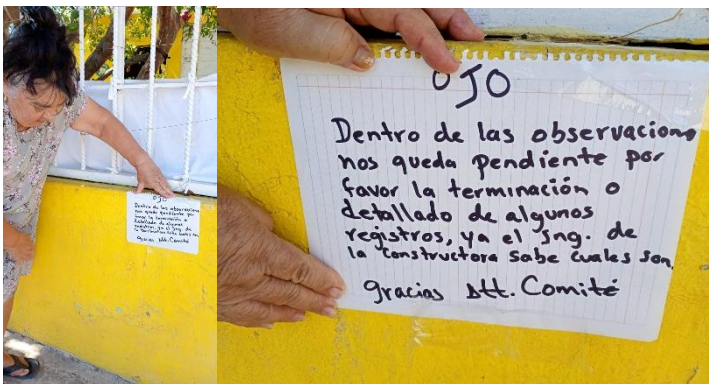 OJO
Dentro de las observacions
nos queda pendiente por
favor la terminación o
detallado de algunos
registros, ya el Ing. de
la constructora sabe cuales son.
gracias Att. Comité
OJO
Dentro de las observaciones
nos queda pendiente por
favor la terminación o
detallado de algunos
registros, ya el Ing. de
la constructora sabe cuales son.
gracias Att. Comité